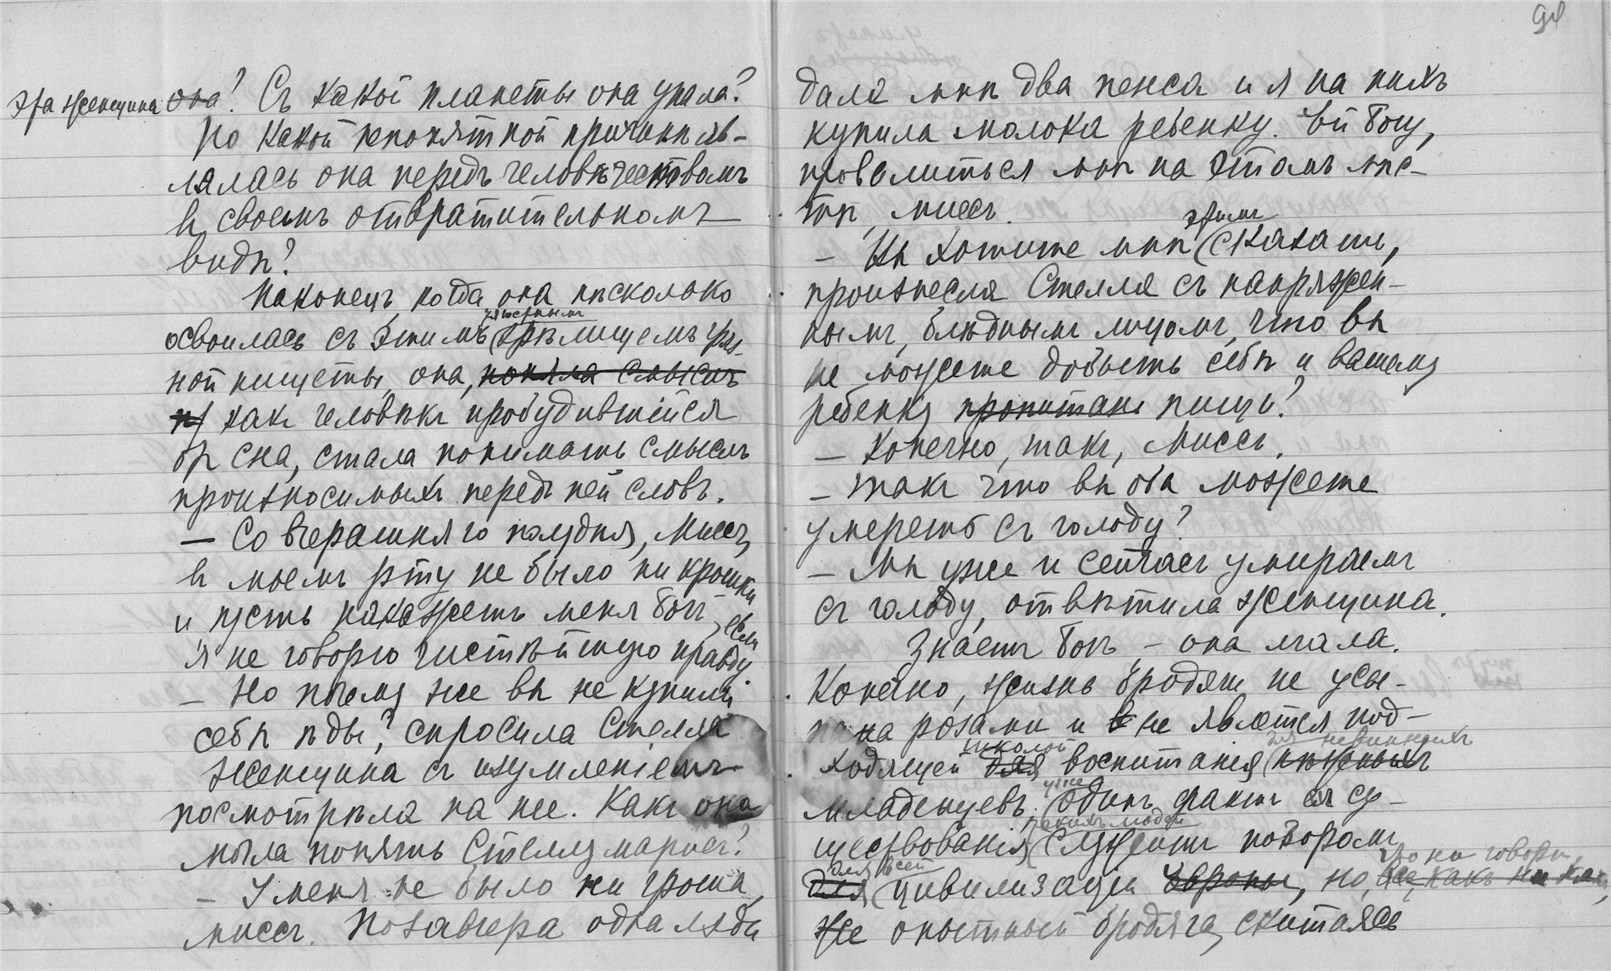 эта женщина она? Съ какой планеты она упала?
По какой непонятной причинѣ яв-
лялась она передъ человѣчествомъ
въ своемъ отвратительномъ
видѣ?
Наконецъ, когда она нѣсколько
ужаснымъ
освоилась съ этимъ зрѣлищемъ гряз-
ной нищеты, она, поняла смыслъ
какъ человѣкъ пробудившійся
отъ сна, стала понимать смыслъ
произносимыхъ передъ ней словъ.
— Со вчерашняго полудня, миссъ,
въ моемъ рту не было ни крошки
и пусть накажетъ меня Богъ, если
я не говорю чистѣйшую правду
— Но почему же вы не купили
себѣ ѣды? спросила Стелла
Женщина съ изумленіемъ
посмотрѣла на нее. Какъ она
могла понять Стеллу Мариса?
— У меня не было ни гроша,
миссъ. Позавчера одна лэди
98
дала мнѣ два пенса и я на нихъ
купила молока ребенку. Ей Богу,
провалиться мнѣ на этомъ мѣс-
тѣ, миссъ.
этимъ
— Вы хотите мнѣ сказать,
произнесла Стелла съ напряжен-
нымъ, блѣднымъ лицомъ, что вы
не можете добыть себѣ и вашему
ребенку пропитанія пищи?
— Конечно, такъ, миссъ.
— Такъ что вы оба можете
умереть съ голоду?
— Мы уже и сейчасъ умираемъ
съ голоду, отвѣтила женщина.
Знаетъ Богъ — она лгала.
Конечно, жизнь бродягъ не усы-
пана розами и не является под-
школой для невинныхъ
ходящей для воспитанія нѣжныхъ
уже
младенцевъ. Одинъ фактъ ея су-
такихъ людей
ществованія служитъ позоромъ
для всей что ни говори,
для цивилизаціи Европы, но, все какъ никакъ,
же опытный бродяга, скитаясь